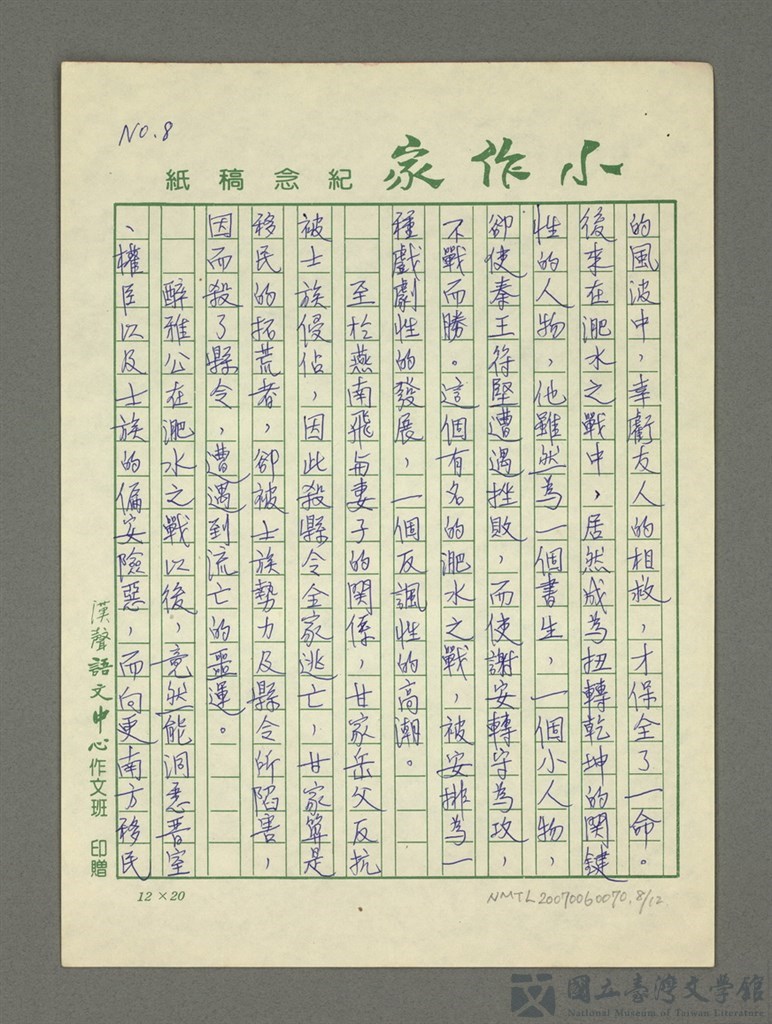 NO.8
小作家紀念稿紙
的風波中，幸虧友人的相救，才保全了一命。
後來在淝水之戰中，居然成為扭轉乾坤的関鍵
性的人物，他雖然為一個書生，一個小人物，
卻使秦王符堅遭遇挫敗，而使謝安轉守為攻，
不戰而勝。這個有名的淝水之戰，被安排為一
種戲劇性的發展，一個反諷性的高潮。
至於燕南飛与妻子的関係，甘家岳父反抗
被士族侵佔，因此殺縣令全家逃亡，甘家算是
移民的拓荒者，卻被士族勢力及縣令所陷害，
因而殺了縣令，遭遇到流亡的噩運。
醉雅公在淝水之戰以後，竟然能洞悉晋室
、權臣以及士族的偏安險惡，而向更南方移民
漢聲語文中心作文班 印贈
12×20
NMTL20070060070.8/12
國立臺灣文學館
National Museum of Taiwan Literature